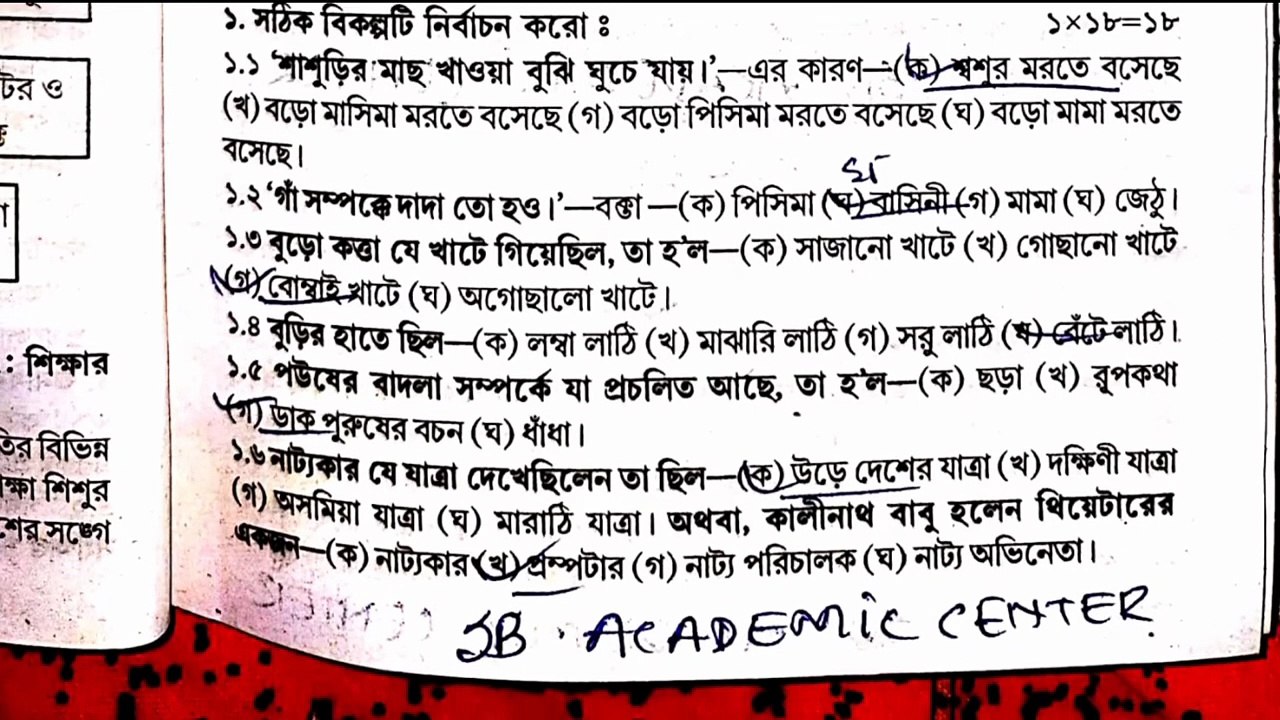 ১. সঠিক বিকল্পটি নির্বাচন করো ঃ ১×১৮=১৮
১.১ 'শাশুড়ির মাছ খাওয়া বুঝি ঘুচে যায়।'—এর কারণ—(ক) শ্বশুর মরতে বসেছে
(খ) বড়ো মাসিমা মরতে বসেছে (গ) বড়ো পিসিমা মরতে বসেছে (ঘ) বড়ো মামা মরতে
বসেছে।
১.২ 'গাঁ সম্পক্কে দাদা তো হও।'—বক্তা—(ক) পিসিমা (খ) বাসিনী (গ) মামা (ঘ) জেঠু।
১.৩ বুড়ো কত্তা যে খাটে গিয়েছিল, তা হ'ল—(ক) সাজানো খাটে (খ) গোছানো খাটে
(গ) বোম্বাই খাটে (ঘ) অগোছালো খাটে।
১.৪ বুড়ির হাতে ছিল—(ক) লম্বা লাঠি (খ) মাঝারি লাঠি (গ) সরু লাঠি (ঘ) বেঁটে লাঠি।
১.৫ পউষের বাদলা সম্পর্কে যা প্রচলিত আছে, তা হ'ল—(ক) ছড়া (খ) রূপকথা
(গ) ডাক পুরুষের বচন (ঘ) ধাঁধা।
১.৬ নাট্যকার যে যাত্রা দেখেছিলেন তা ছিল—(ক) উড়ে দেশের যাত্রা (খ) দক্ষিণী যাত্রা
(গ) অসমিয়া যাত্রা (ঘ) মারাঠি যাত্রা। অথবা, কালীনাথ বাবু হলেন থিয়েটারের
একজন—(ক) নাট্যকার (খ) প্রম্পটার (গ) নাট্য পরিচালক (ঘ) নাট্য অভিনেতা।
SB. ACADEMIC CENTER
টের ও
: শিক্ষার
তর বিভিন্ন
ক্ষা শিশুর
শের সঙ্গে